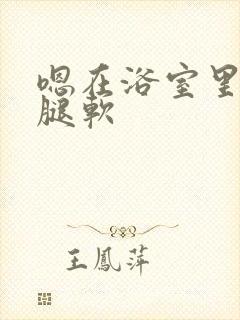 嗯在浴室里
腿軟
王鳳萍